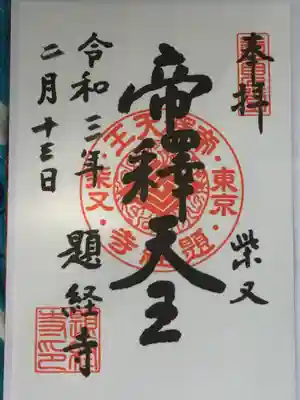 奉拝
柴又
帝釋天王
題経寺
令和三年
二月十三日
帝釋天王・東京・題経寺・柴又